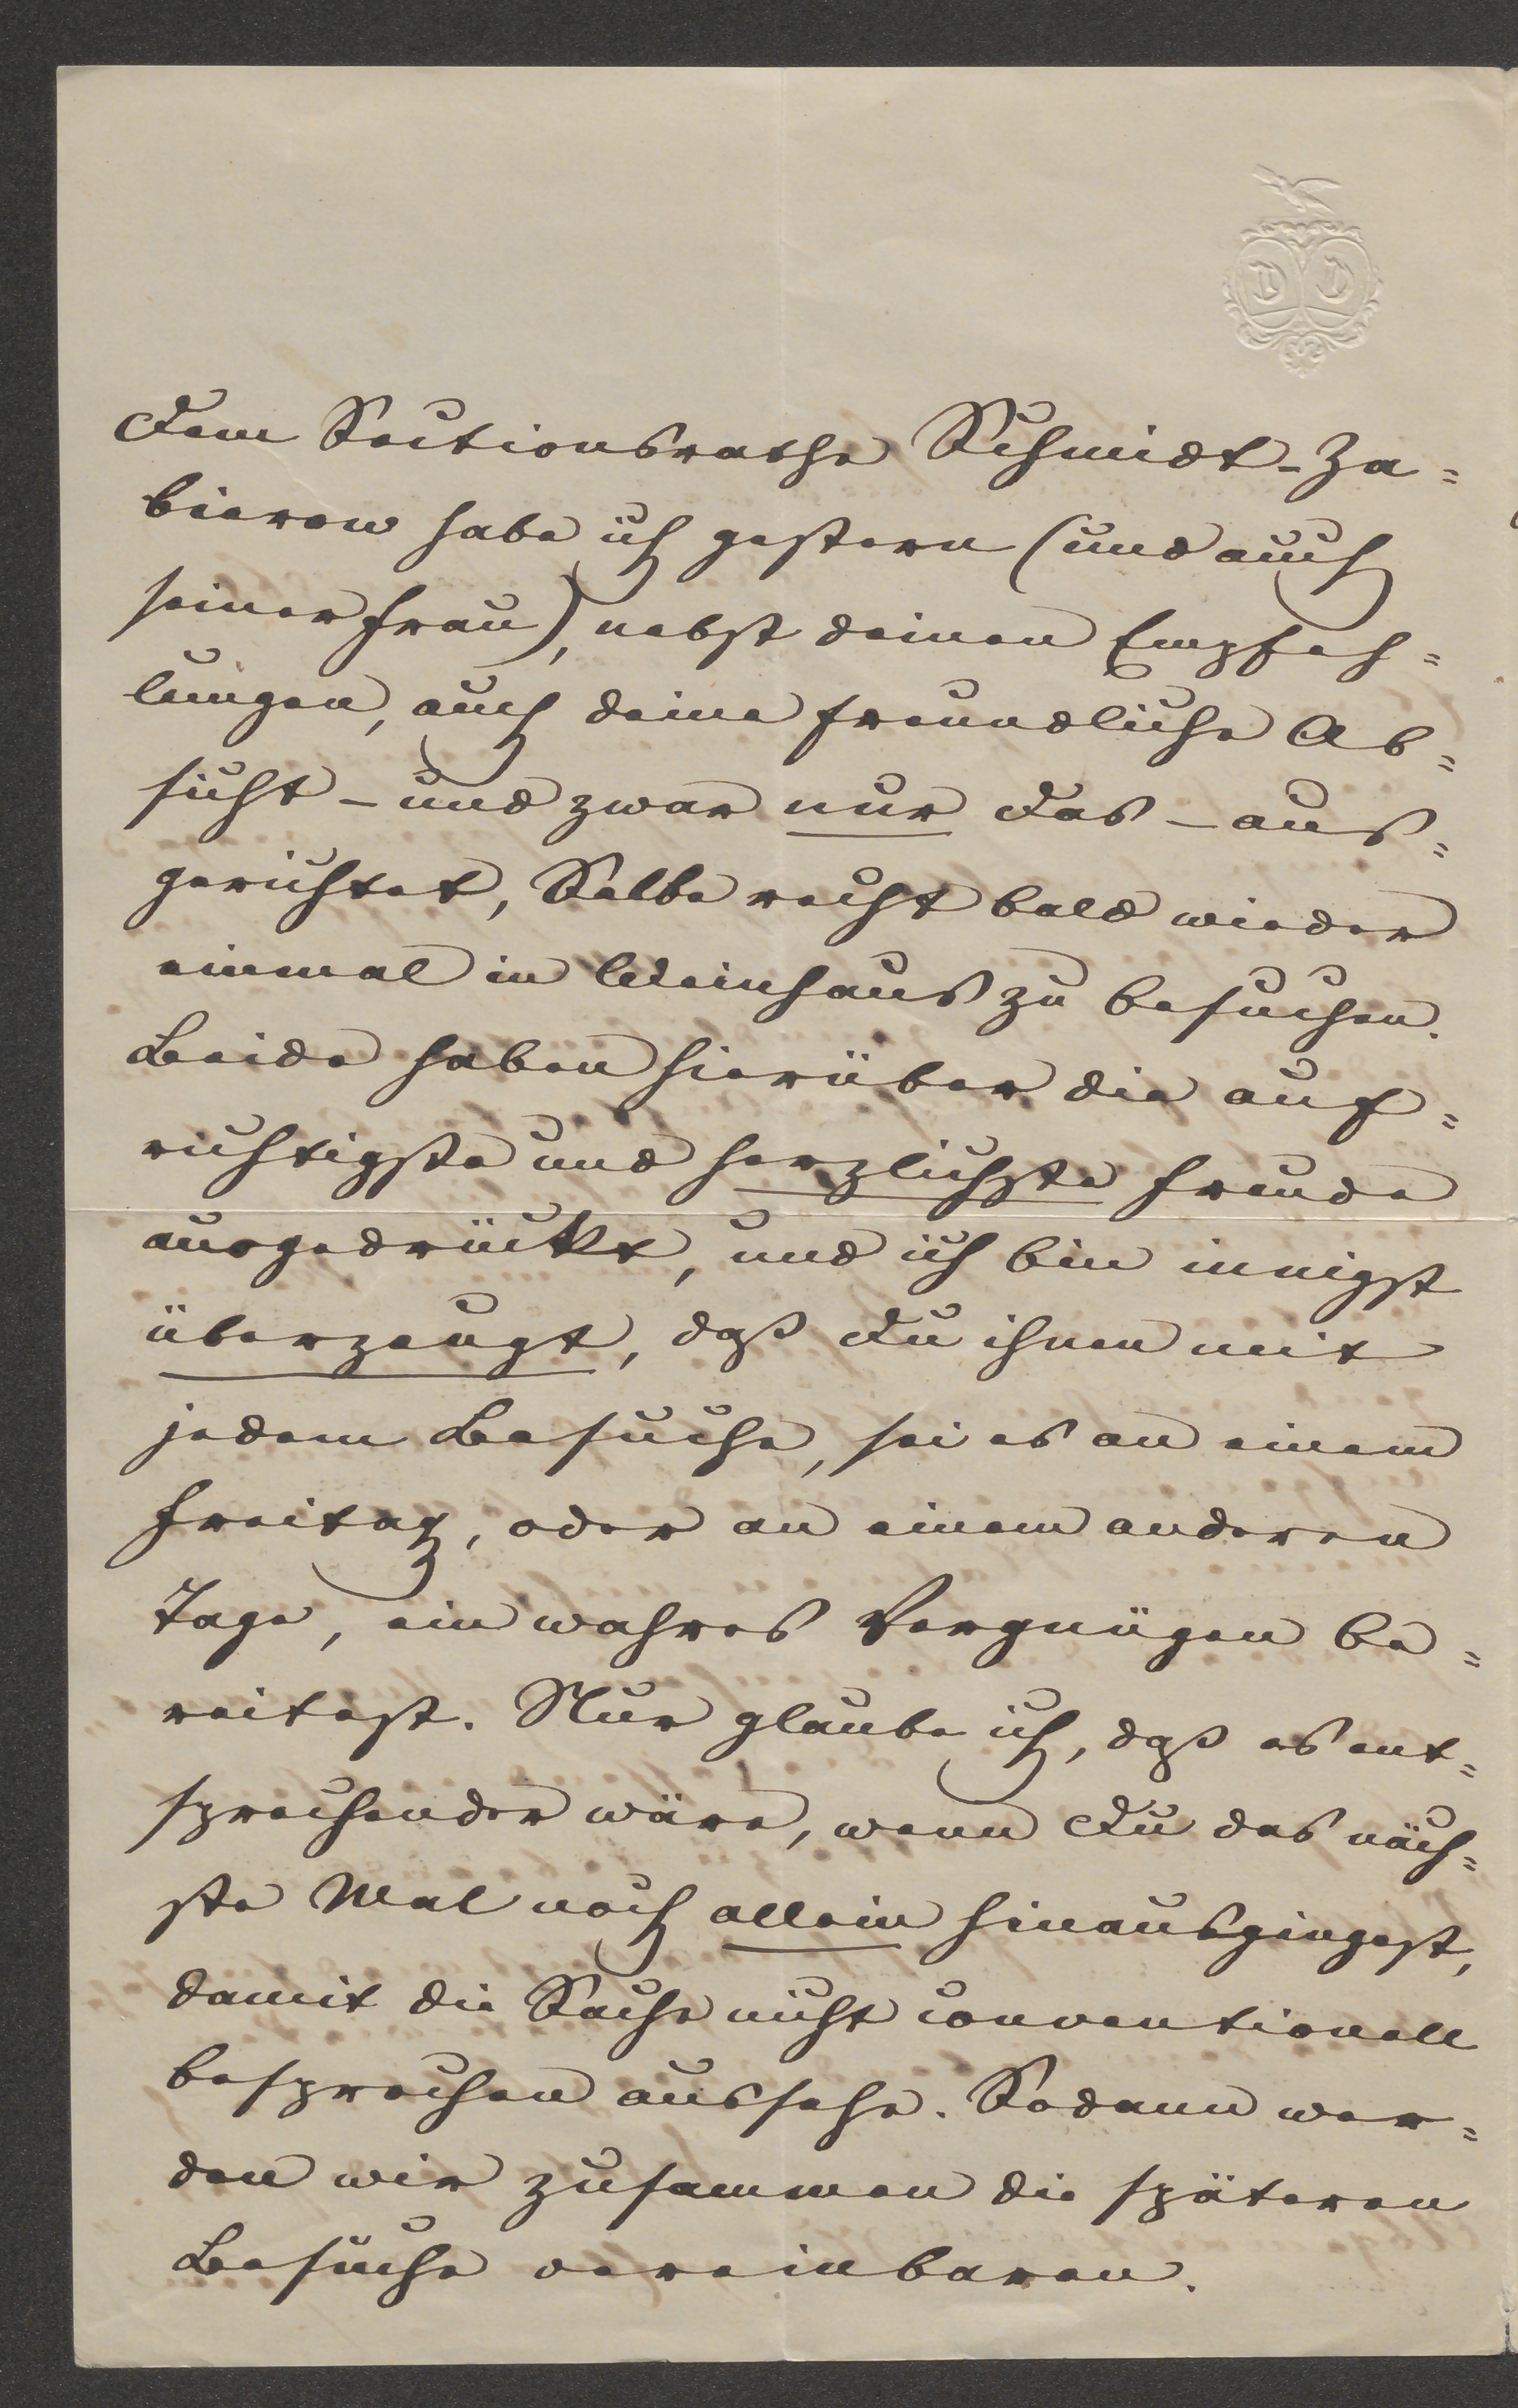 D D
Dem Sectionsrathe Schmidt-Za=
bierow habe ich gestern (und auch
seiner Frau), nebst deinen Empfeh=
lungen, auch deine freundliche Ab=
sicht – und zwar nur das – aus=
gerichtet, Selbe recht bald wieder
einmal in Weinhaus zu besuchen.
Beide haben hierüber die auf=
richtigste und herzlichste Freude
ausgedrückt, und ich bin innigst
überzeugt, daß Du ihnen mit
jedem Besuche, sei es an einem
Freitag, oder an einem anderen
Tage, ein wahres Vergnügen be=
reitest. Nur glaube ich, daß es ent=
sprechender wäre, wenn Du das näch=
ste Mal noch allein hinausgingest,
damit die Sache nicht conventionell
besprochen aussehe. Sodann wer=
den wir zusammen die späteren
Besuche vereinbaren.